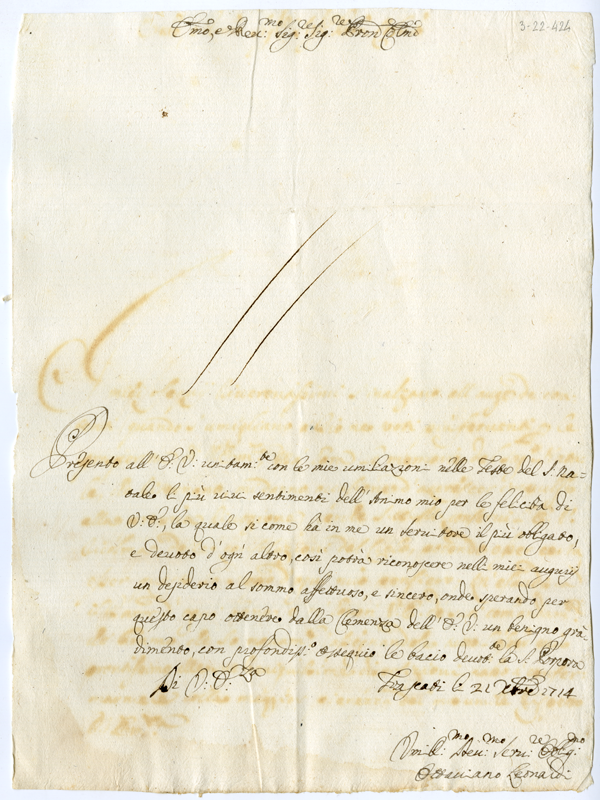 Em̃o, e Rev:mo Sig:re Sig:re Pron Col̃mo
3-22-424
Presento all' E: V: unitam:te con le mie umiliazioni nelle Feste del S. Na=
tale li più vivi sentimenti dell'Animo mio per le felicità di
V: E:, la quale si come hà in me un servitore il più obligato,
e devoto d'ogn'altro, così potrà riconoscere nelli miei augurij
un desiderio al sommo affettuoso, e sincero, onde sperando per
questo capo ottenere dalla Clemenza dell' E: V: un benigno gra=
dimento, con profondiss:o ossequio le bacio devot:te la S. Porpora
Di V: E:za
Frascati li 21 Xbre 1714
Umil:mo Dev:mo Serv:re Oblig:mo
Ottaviano Leonardi